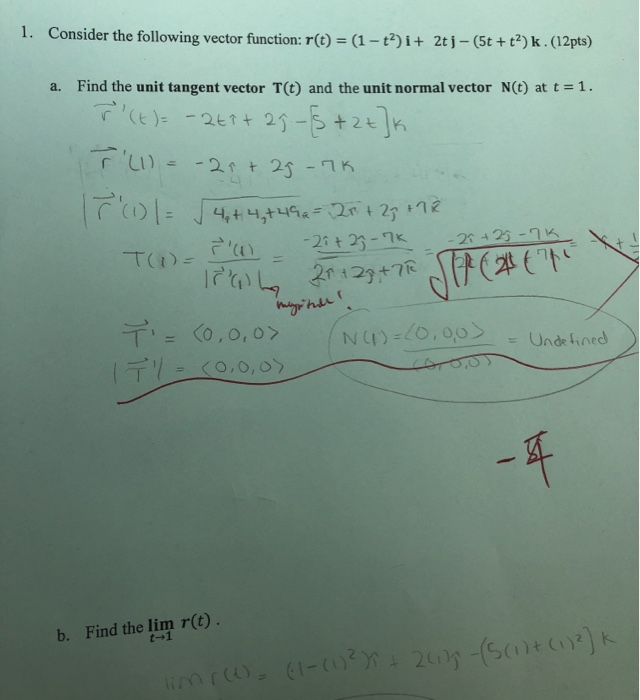 1. Consider the following vector function: r(t) = (1 – t²) i + 2t j – (5t + t²) k . (12pts)
a. Find the unit tangent vector T(t) and the unit normal vector N(t) at t = 1.
r'(t) = -2tî + 2ĵ - [5 + 2t]k
r'(1) = -2î + 2ĵ - 7k
|r'(1)| = √4 + 4 + 49 = 2î + 2ĵ + 7k̂
T(1) = r'(1) / |r'(1)| = -2î + 2ĵ - 7k / 2î + 2ĵ + 7k̂ = -2î + 2ĵ - 7k
magnitude!
T' = <0,0,0> N(1) = <0,0,0> / <0,0,0> = Undefined
|T'| = <0,0,0>
b. Find the lim t→1 r(t) .
lim r(t) = (1-(1)²)î + 2(1)ĵ - [5(1)+(1)²]k